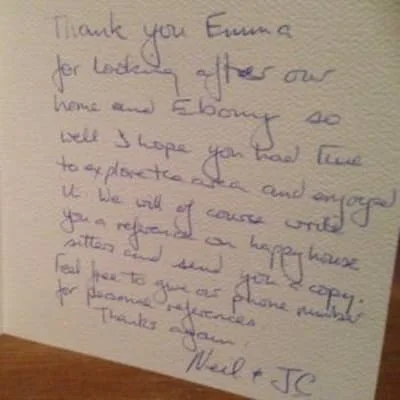 Thank you Emma
for looking after our
home and Ebony so
well I hope you had time
to explore the area and enjoyed
it. We will of course write
you a reference on happy house
sitters and send you a copy.
Feel free to give our phone number
for personal references.
Thanks again.
Neil + JC